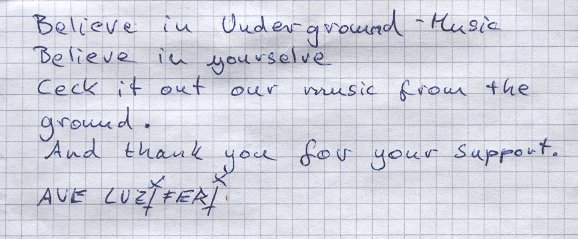 Believe in Under-ground-Music
Believe in yourselve
Ceck it out our music from the
ground.
And thank you for your support.
AVE LUZIFER!